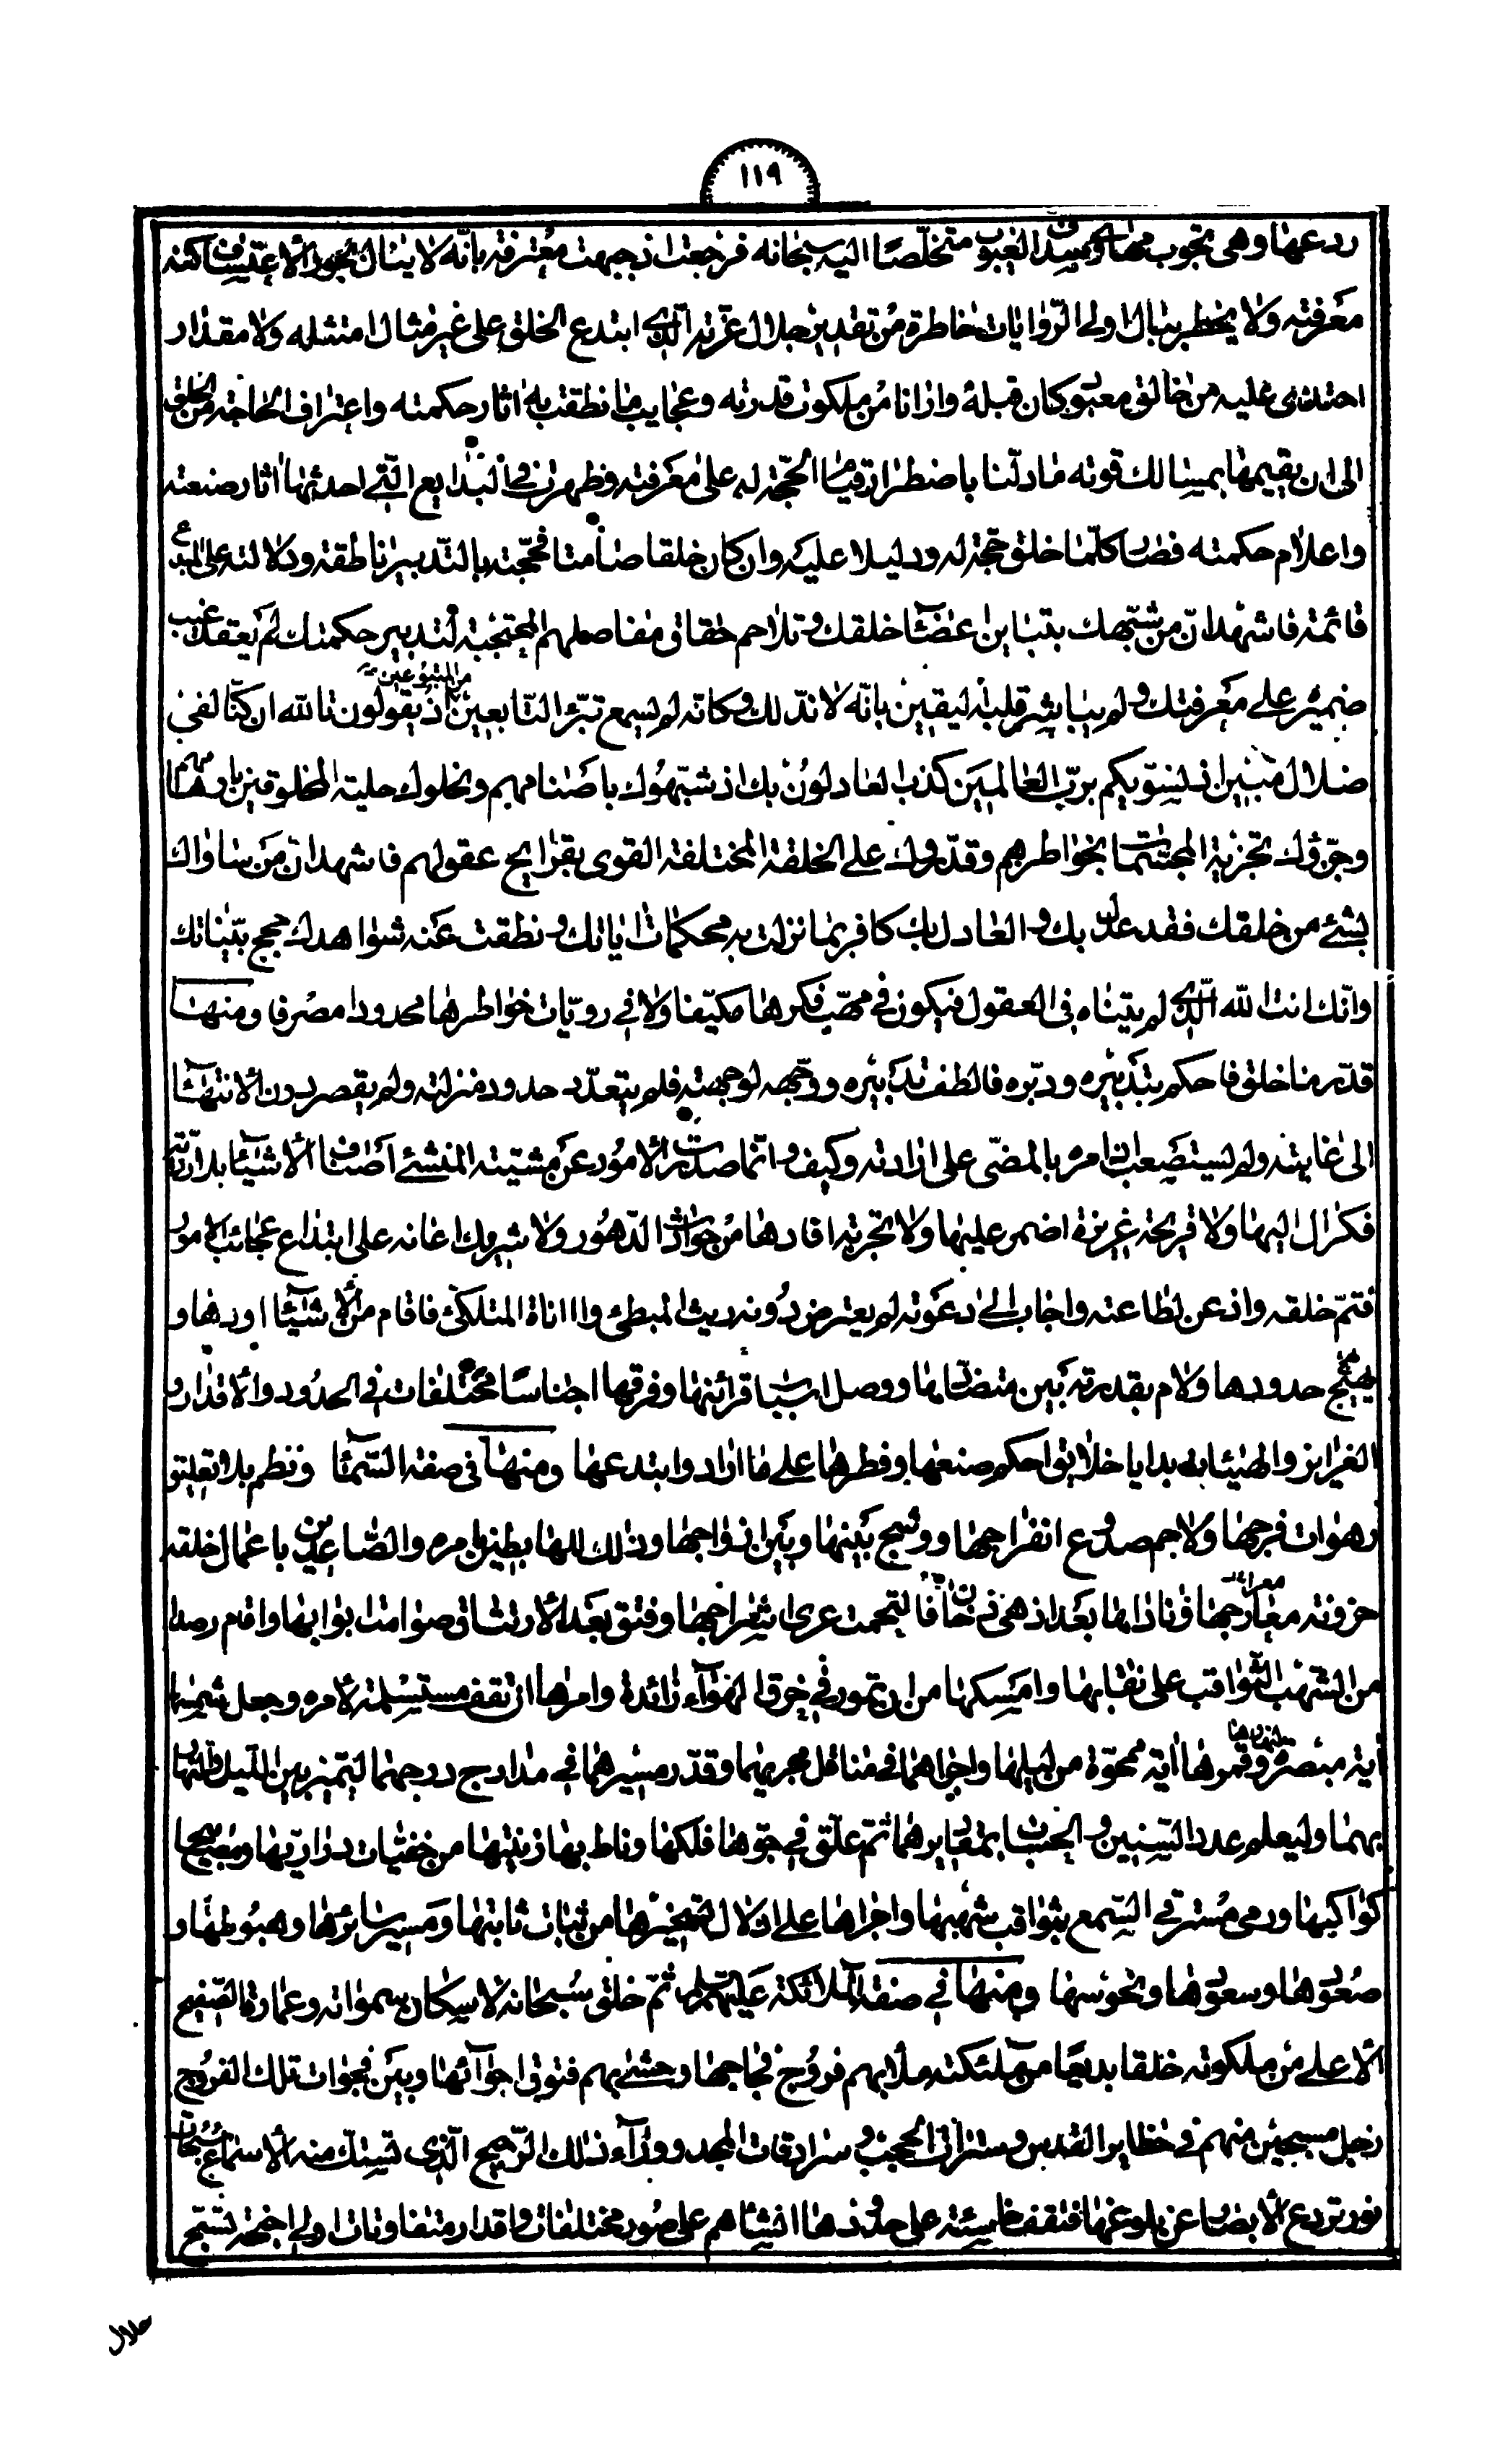 ١١٩
ردعها وهي تجوب مهاوي سدف الغيوب متخلّصة اليه سبحانه فرجعت اذ جبهت معترفة بانّه لا ينال بجور الاعتساف كنه
معرفته ولا يخطر ببال اولي الرّوايات خاطرة من تقدير جلال عزّته الّذي ابتدع الخلق على غير مثال امتثله ولا مقدار
احتذى عليه من خالق معبود كان قبله وارانا من ملكوت قدرته وعجايب ما نطقت به اثار حكمته واعتراف الحاجة من الخلق
الى ان يقيمها بمساك قوته ما دلّنا باضطرار قيام الحجّة له على معرفته وظهرت في البدايع الّتي احدثها اثار صنعته
واعلام حكمته فصار كلّما خلق حجة له ودليلا عليه وان كان خلقا صامتا فحجّته بالتّدبير ناطقة ودلالته على المبدع
قائمة فاشهد انّ من شبّهك بتباين اعضاء خلقك وتلاحم حقاق مفاصلهم المحتجبة لتدبير حكمتك لم يعقد غيب
ضميره على معرفتك ولم يباشر قلبه اليقين بانّه لا ندّ لك وكانّه لم يسمع تبرّء التّابعين من المتبوعين اذ يقولون تالله ان كنّا لفي
ضلال مبين اذ نسوّيكم بربّ العالمين كذب العادلون بك اذ شبّهوك باصنامهم ونحلوك حلية المخلوقين باوهامهم
وجزّؤك تجزية المجسّمات بخواطرهم وقدّروك على الخلقة المختلفة القوى بقرايح عقولهم فاشهد انّ من ساواك
بشئ من خلقك فقد عدل بك والعادل بك كافر بما نزلت به محكمات اياتك ونطقت عنه شواهد حجج بيّناتك
وانّك انت الله الّذي لم تتناه في العقول فتكون في مهبّ فكرها مكيّفا ولا في رويّات خواطرها محدودا مصرفا ومنها
قدّر ما خلق فاحكم تدبيره ودبّره فالطف تدبيره ووجّهه لوجهته فلم يتعدّ حدود منزلته ولم يقصر دون الانتهاء
الى غايته ولم يستصعب اذ امره بالمضيّ على ارادته وكيف وانّما صدرت الامور عن مشيّته المنشئ اصناف الاشياء بلا رويّة
فكر ال اليها ولا قريحة غريزة اضمر عليها ولا تجربة افادها من حوادث الدّهور ولا شريك اعانه على ابتداع عجائب الامور
فتمّ خلقه واذعن لطاعته واجاب الى دعوته لم يعترض دونه ريث المبطئ ولا اناة المتلكّئ فاقام من الاشياء اودها و
نهج حدودها ولام بقدرته بين متضادّها ووصل اسباب قرائنها وفرقها اجناسا مختلفات في الحدود والاقدار و
الغرايز والهيئات بدايا خلايق احكم صنعها وفطرها على ما اراد وابتدعها ومنها في صفة السّماء ونظم بلا تعليق
رهوات فرجها ولاحم صدوع انفراجها ووشّج بينها وبين ازواجها وذلّل للهابطين بامره والصّاعدين باعمال خلقه
حزونة معارجها وناداها بعد اذ هي دخان فالتحمت عرى اشراجها وفتق بعد الارتتاق صوامت ابوابها واقام رصدا
من الشهب الثّواقب على نقابها وامسكها من ان تمور في خرق الهواء زائدة وامرها ان تقف مستسلمة لامره وجعل شمسها
اية مبصرة لنهارها وقمرها اية ممحوّة من ليلها واجراهما في مناقل مجريهما وقدّر مسيرهما في مدارج درجهما ليميّز بين اللّيل والنّهار
بهما وليعلم عدد السّنين والحساب بمقاديرهما ثمّ علّق في جوّها فلكها وناط بها زينتها من خفيّات دراريّها ومصابيح
كواكبها ورمى مسترقي السّمع بثواقب شهبها واجراها على اذلال تسخيرها من ثبات ثابتها ومسير سائرها وهبوطها و
صعودها وسعودها ونحوسها ومنها في صفة الملائكة عليهم السلام ثمّ خلق سبحانه لاسكان سمواته وعمارة الصّفيح
الاعلى من ملكوته خلقا بديعا من ملئكته ملا بهم فروج فجاجها وحشى بهم فتوق اجوائها وبين فجوات تلك الفروج
زجل مسبّحين منهم في حظاير القدس وسترات الحجب وسرادقات المجد ووراء ذلك الرّجيج الّذي تستكّ منه الاسماع سبحات
نور تردع الابصار عن بلوغها فتقف خاسئة على حدودها انشاهم على صور مختلفات واقدار متفاوتات اولي اجنحة تسبّح
جلال